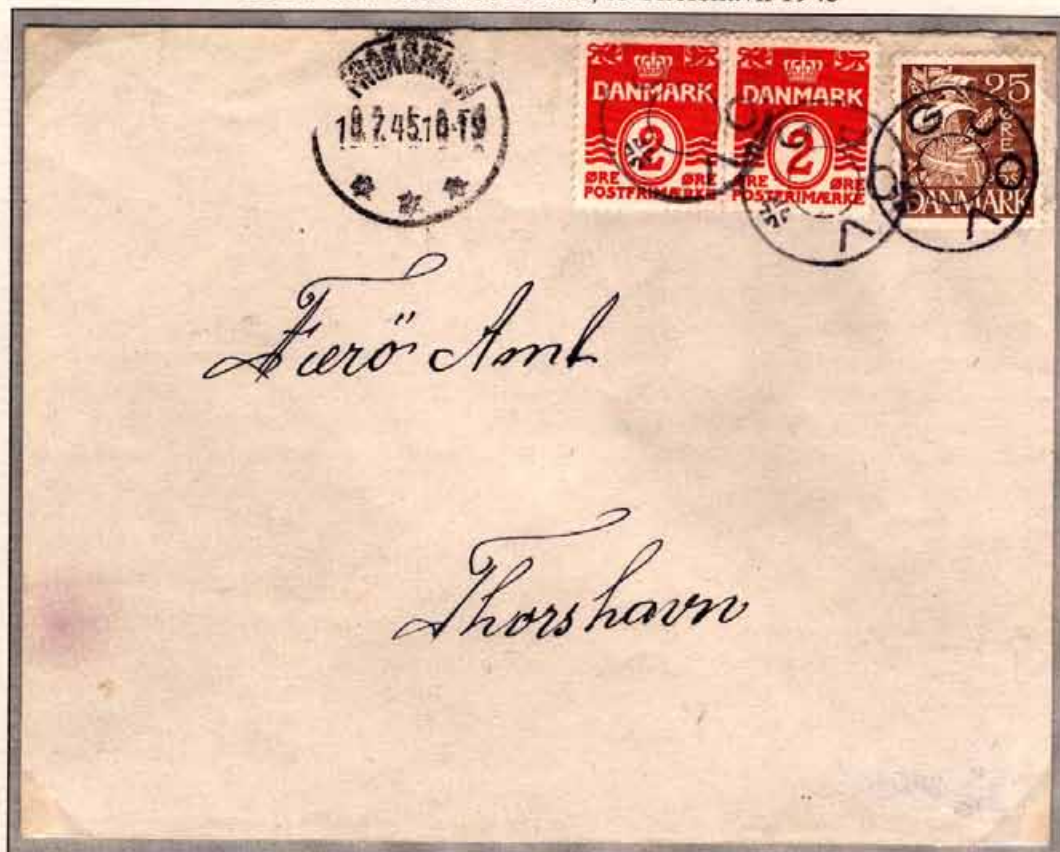 18.7.45.18-19
DANMARK
2
ØRE ØRE
POSTFRIMÆRKE
DANMARK
2
ØRE ØRE
POSTFRIMÆRKE
25
ØRE
DANMARK
GJOV
Færö Amt
Thorshavn